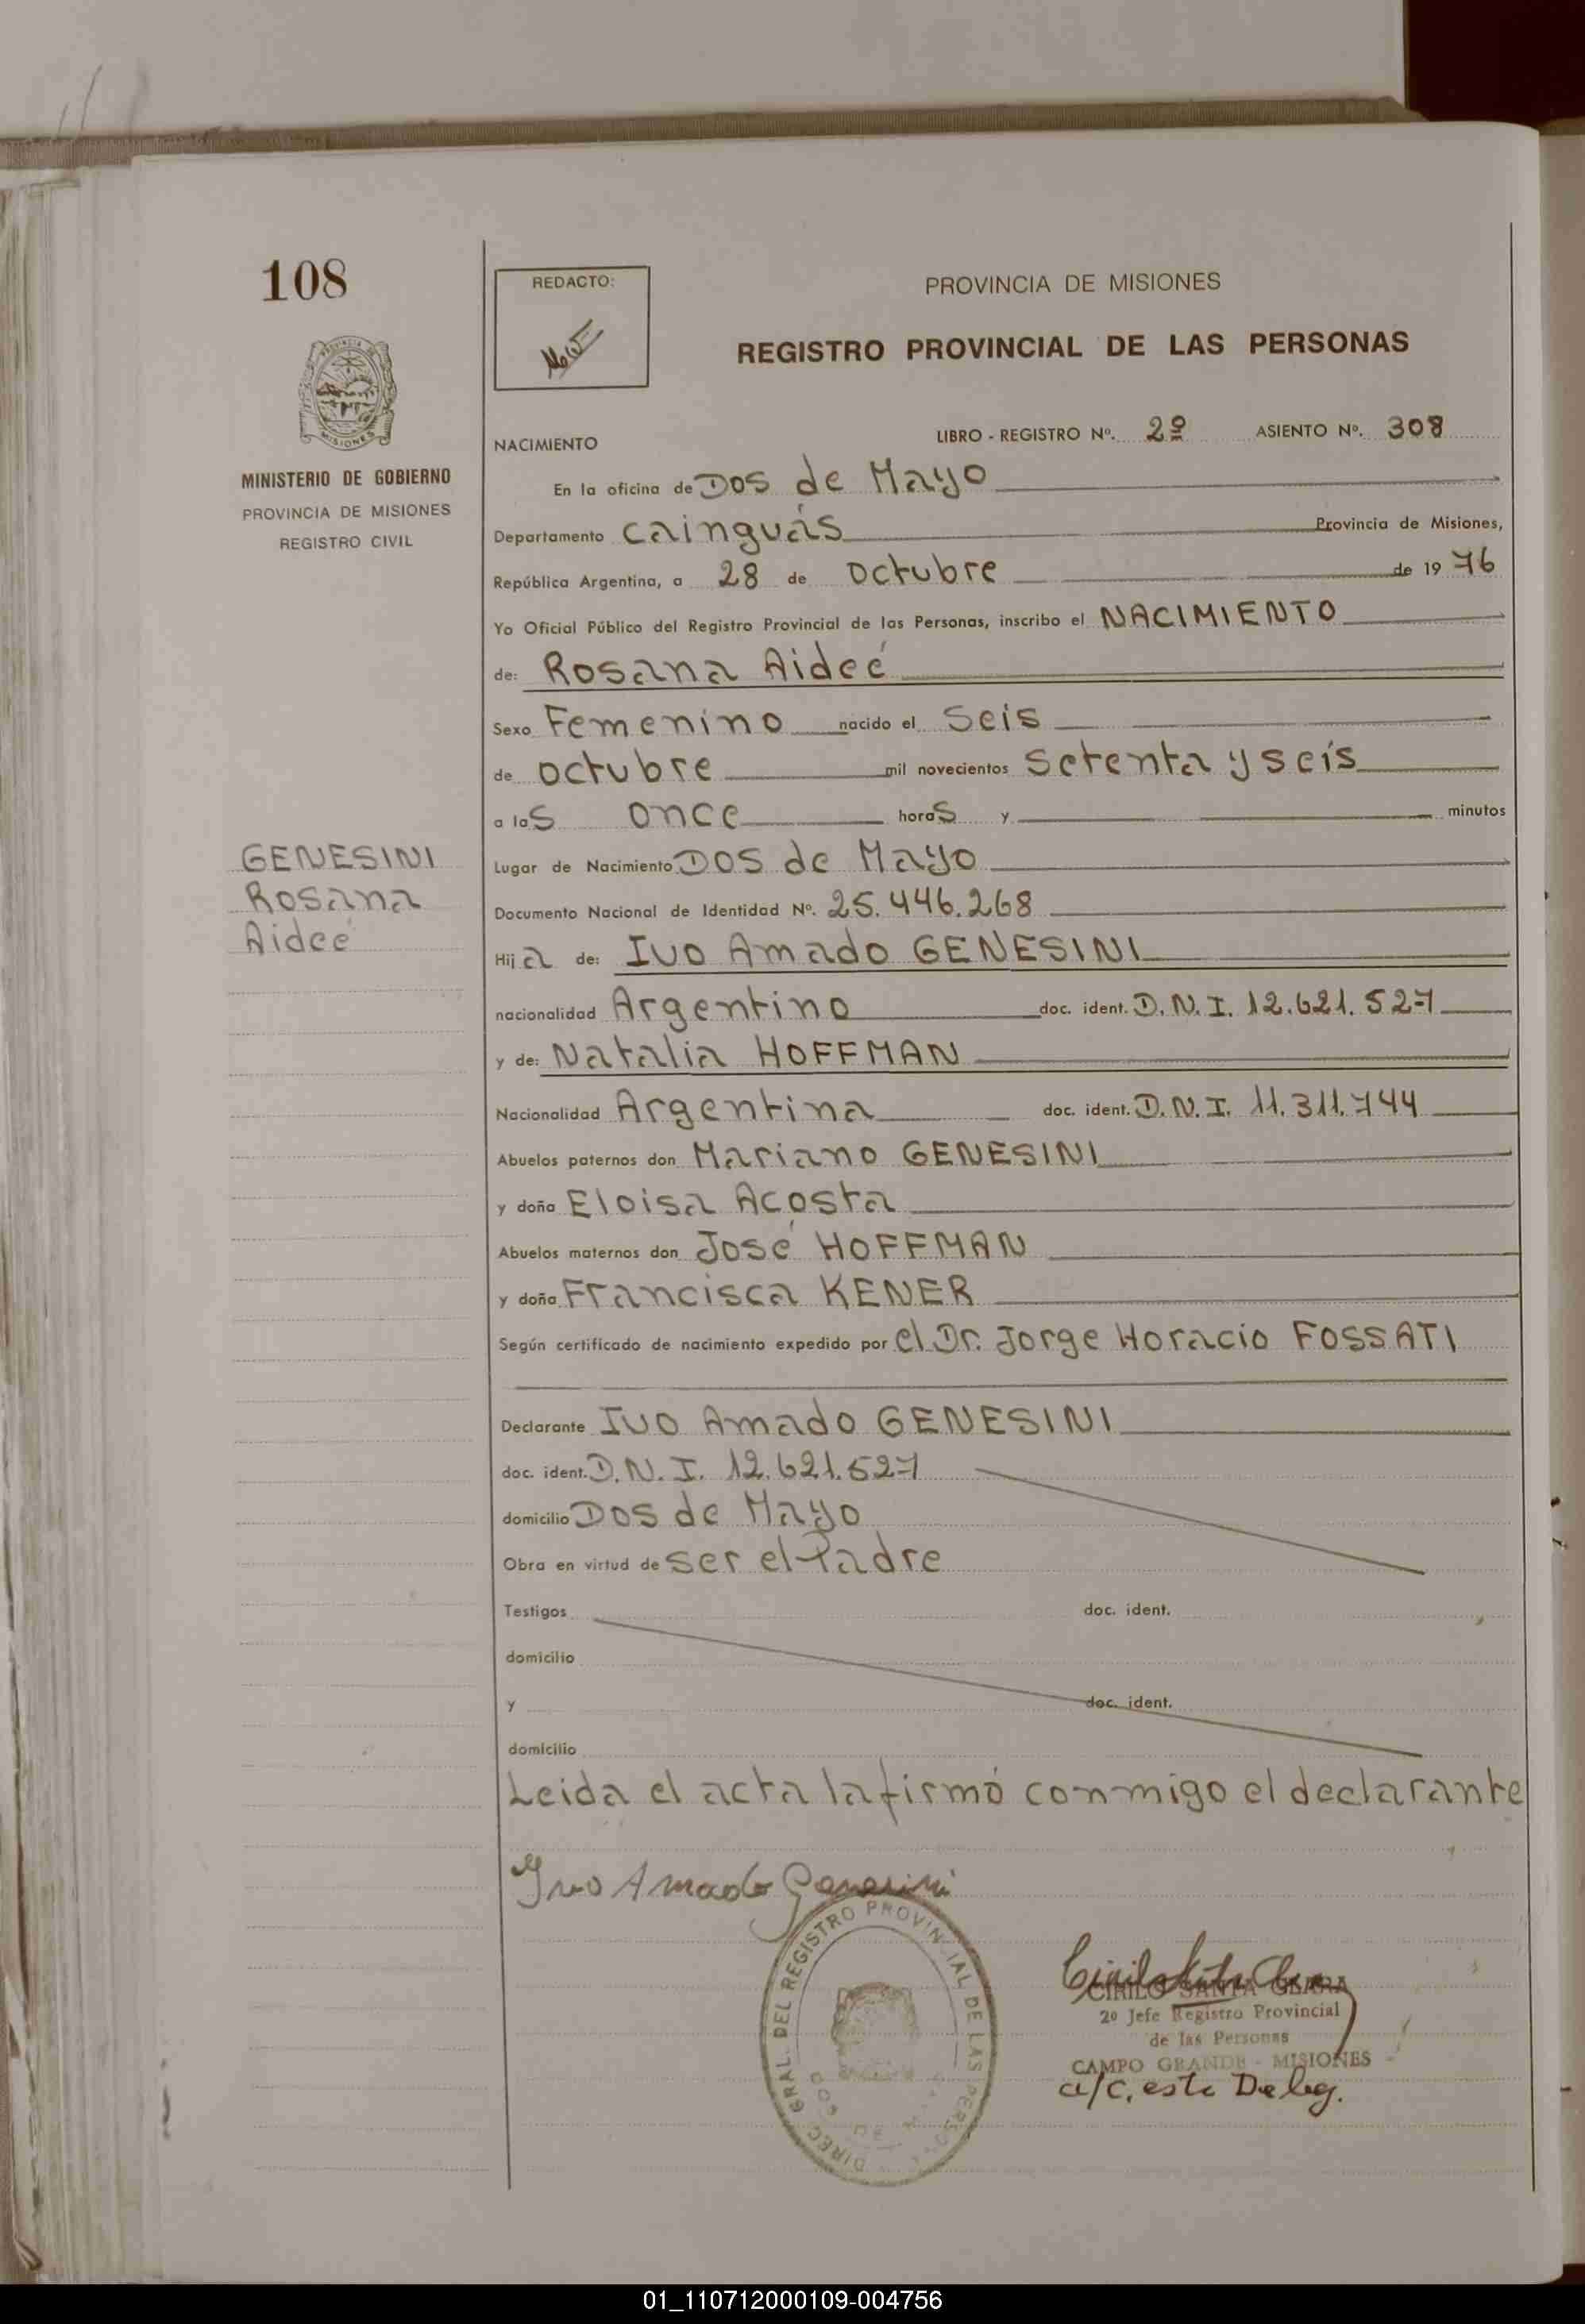 108
PROVINCIA DE
MISIONES
MINISTERIO DE GOBIERNO
PROVINCIA DE MISIONES
REGISTRO CIVIL
GENESINI
Rosana
Aideé
REDACTO:
PROVINCIA DE MISIONES
REGISTRO PROVINCIAL DE LAS PERSONAS
NACIMIENTO LIBRO - REGISTRO Nº. 2º ASIENTO Nº. 308
En la oficina de Dos de Mayo
Departamento Cainguás Provincia de Misiones,
República Argentina, a 28 de octubre de 1976
Yo Oficial Público del Registro Provincial de las Personas, inscribo el NACIMIENTO
de: Rosana Aideé
Sexo Femenino nacido el Seis
de octubre mil novecientos Setenta y seis
a las once horas y minutos
Lugar de Nacimiento Dos de Mayo
Documento Nacional de Identidad Nº. 25.446.268
Hija de: Ivo Amado GENESINI
nacionalidad Argentino doc. ident. D.N.I. 12.621.527
y de: Natalia HOFFMAN
Nacionalidad Argentina doc. ident. D.N.I. 11.311.744
Abuelos paternos don Mariano GENESINI
y doña Eloisa Acosta
Abuelos maternos don José HOFFMAN
y doña Francisca KENER
Según certificado de nacimiento expedido por el Dr. Jorge Horacio FOSSATI
Declarante Ivo Amado GENESINI
doc. ident. D.N.I. 12.621.527
domicilio Dos de Mayo
Obra en virtud de ser el Padre
Testigos doc. ident.
domicilio
y doc. ident.
domicilio
Leida el acta la firmó conmigo el declarante
Ivo Amado Genesini
DIREC. GRAL. DEL REGISTRO PROVINCIAL DE LAS PERSO
CIRILO SANTA CLARA
2º Jefe Registro Provincial
de las Personas
CAMPO GRANDE - MISIONES
a/c. este Deleg.
01_110712000109-004756